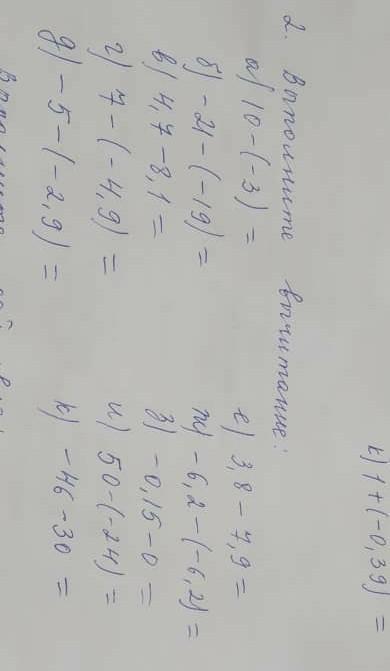 к) 1 + (-0,39) =
2. Выполните вычитание:
а) 10 - (-3) =
б) -21 - (-19) =
в) 4,7 - 8,1 =
г) 7 - (-4,9) =
д) -5 - (-2,9) =
е) 3,8 - 7,9 =
ж) -6,2 - (-6,2) =
з) -0,15 - 0 =
и) 50 - (-24) =
к) -46 - 30 =